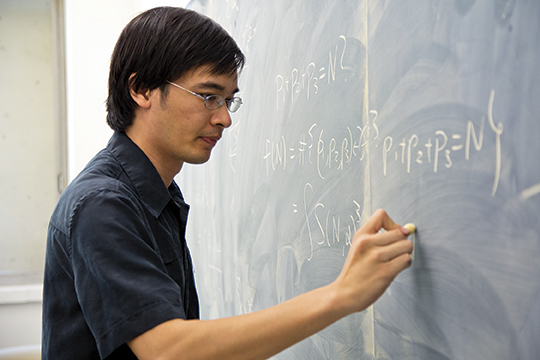 p₁+p₂+p₃=N?
r(N)=#{(p₁,p₂,p₃):
p₁+p₂+p₃=N}
=∫S(N,